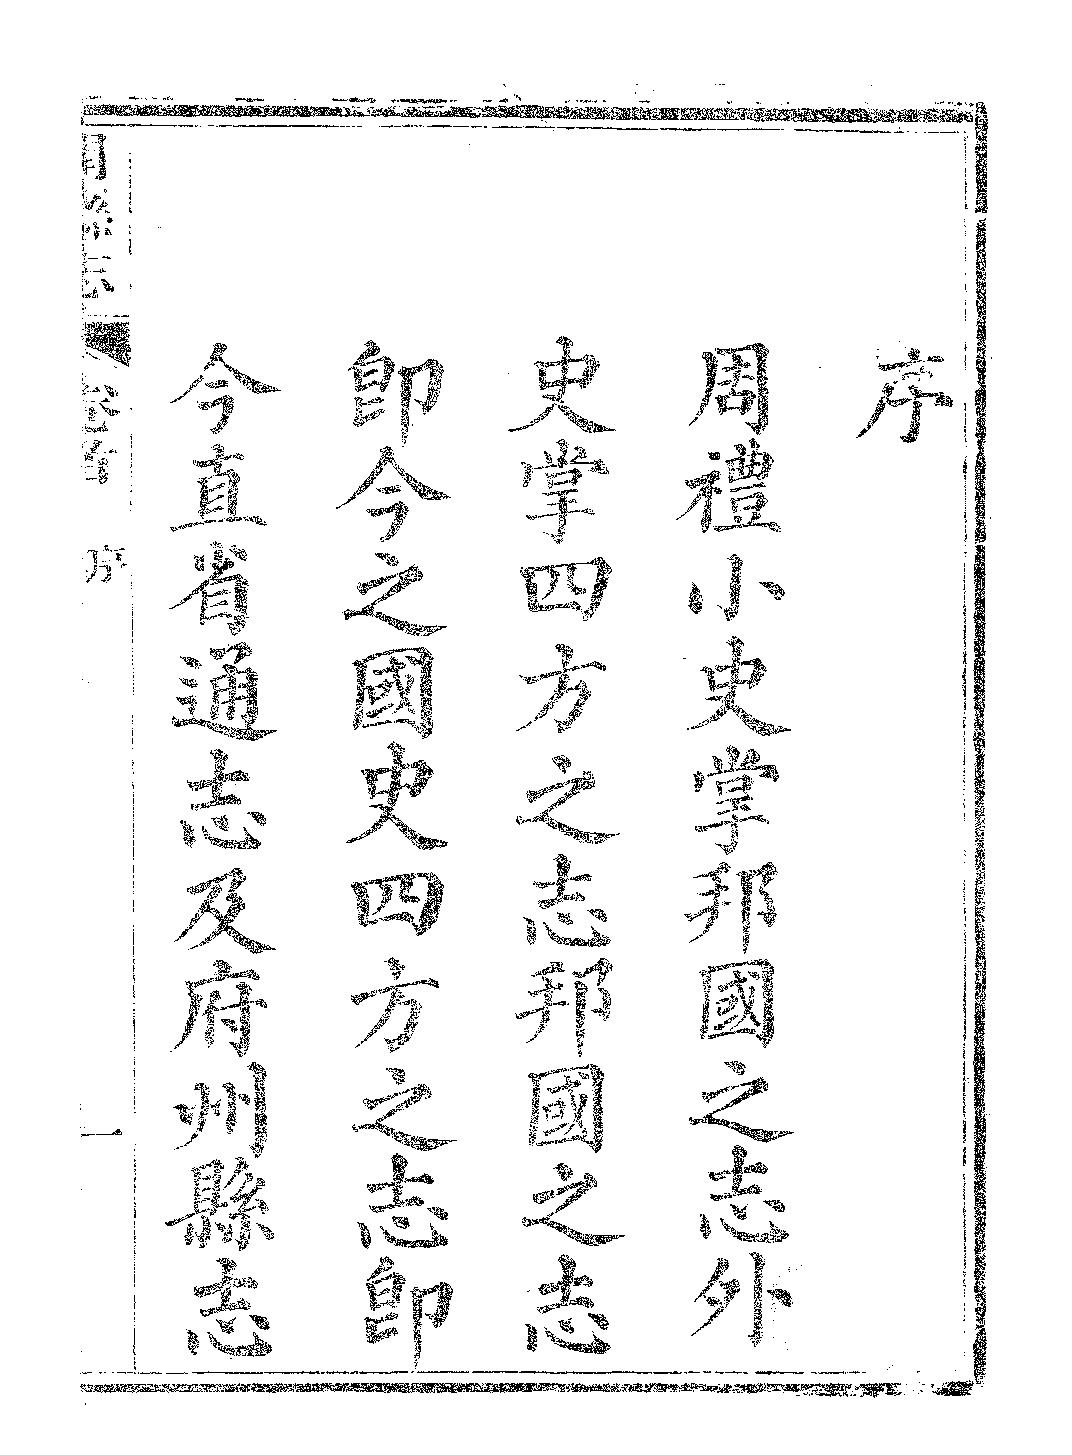 序
周禮小史掌邦國之志外
史掌四方之志邦國之志
卽今之國史四方之志卽
今直省通志及府州縣志
卷首
序
一